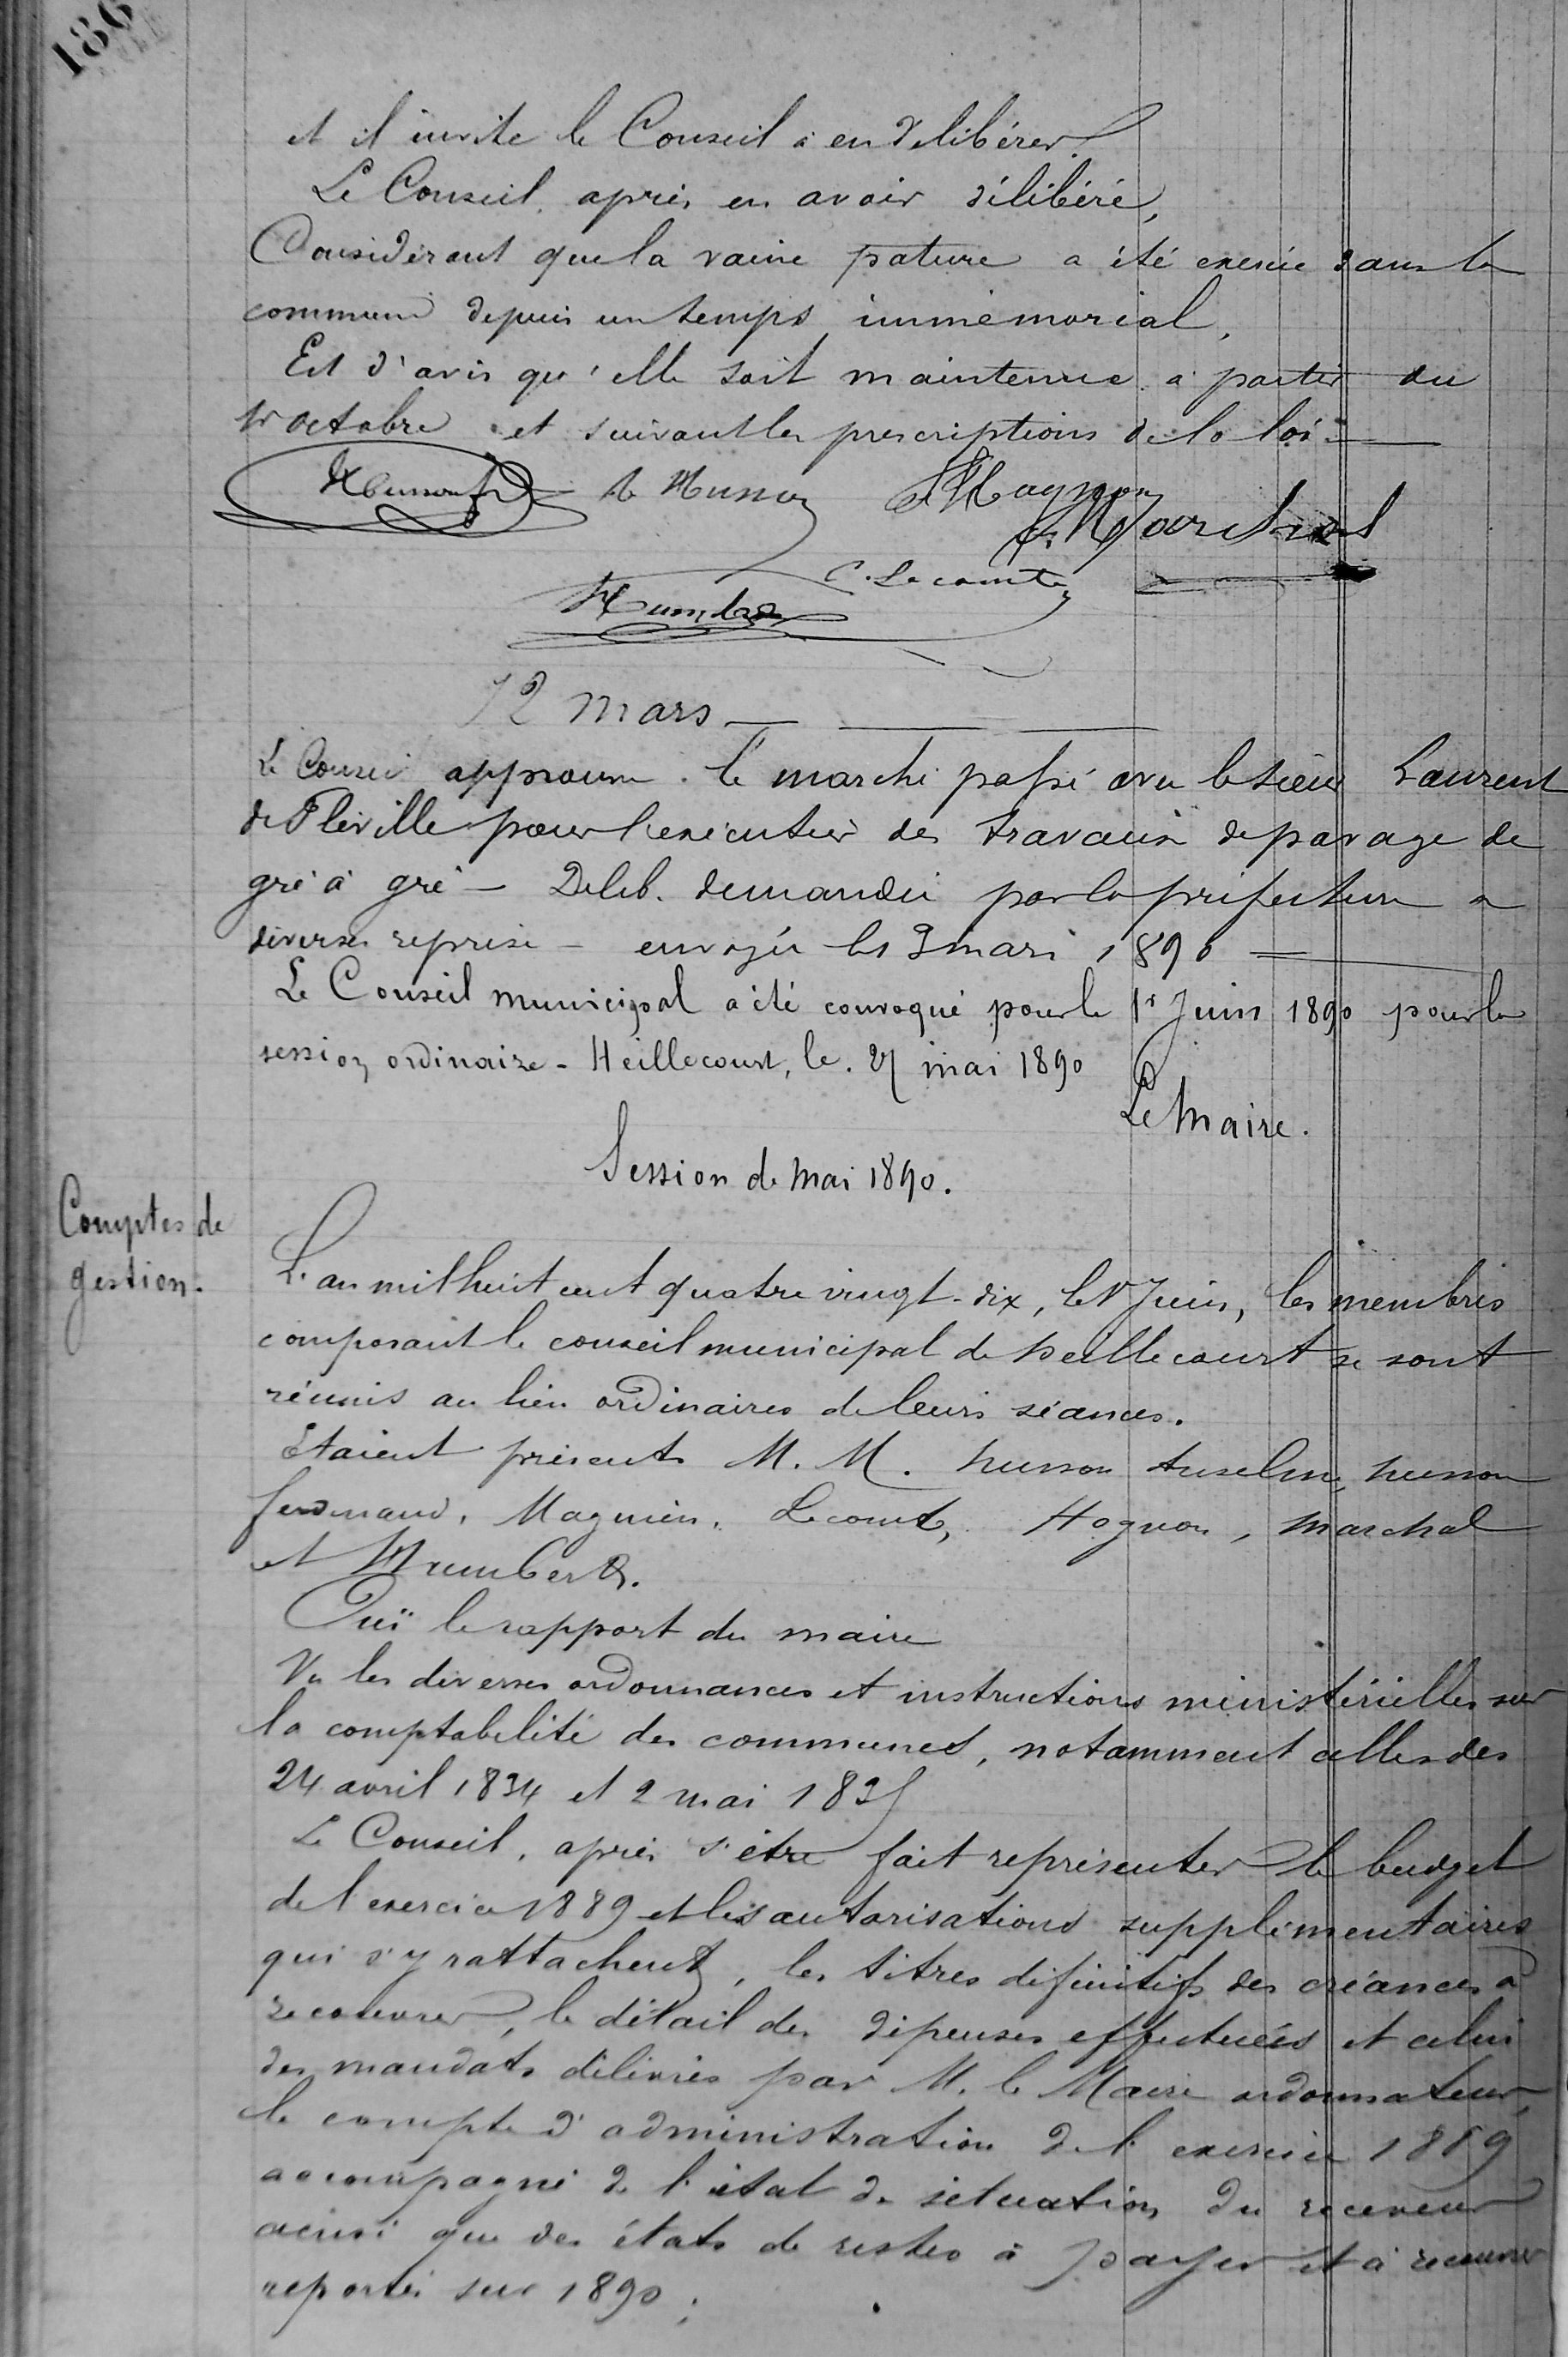 186
et il invite le Conseil à en délibérer.
Le Conseil, après en avoir délibéré,
Considérant que la vaine pature a été exercée dans la
commune depuis un temps immémorial,
Est d'avis qu'elle soit maintenue à partir du
1r octobre et suivant les prescriptions de la loi.
Husson f Husson Magnien
Marchal
C. Lecomte
Humbert
12 mars
Le Conseil approuve le marché passé avec le sieur Laurent
de Fléville pour l'exécution des travaux de pavage de
gré à gré - Delib. demandée par la préfecture a
diverses reprise - envoyée le 13 mars 1890
Le Conseil municipal a été convoqué pour le 1r Juin 1890 pour la
session ordinaire - Heillecourt, le 27 mai 1890
Le Maire.
Session de Mai 1890.
Comptes de
gestion.
L'an mil huit cent quatre vingt-dix, le 1r Juin, les membres
composant le conseil municipal de heillecourt se sont
réunis au lieu ordinaires de leurs séances.
Etaient présents M. M. husson Anselme, husson
ferdinand, Magnien, Lecomte, Hognon, Marchal
et Humbert.
Ouï le rapport du maire
Vu les diverses ordonnances et instructions ministérielles sur
la comptabilité des communes, notamment celles des
24 avril 1834 et 2 mai 1835
Le Conseil, après s'être fait représenter le budget
de l'exercice 1889 et les autorisations supplémentaires
qui s'y rattachent, les titres définitifs des créances à
recouvrer, le détail des dépenses effectuées et celui
des mandats délivrés par M. le Maire ordonnateur,
le compte d'administration de l'exercice 1889
accompagné de l'état de situation du receveur
ainsi que des états de restes à payer et à recouvrer
reportés sur 1890;